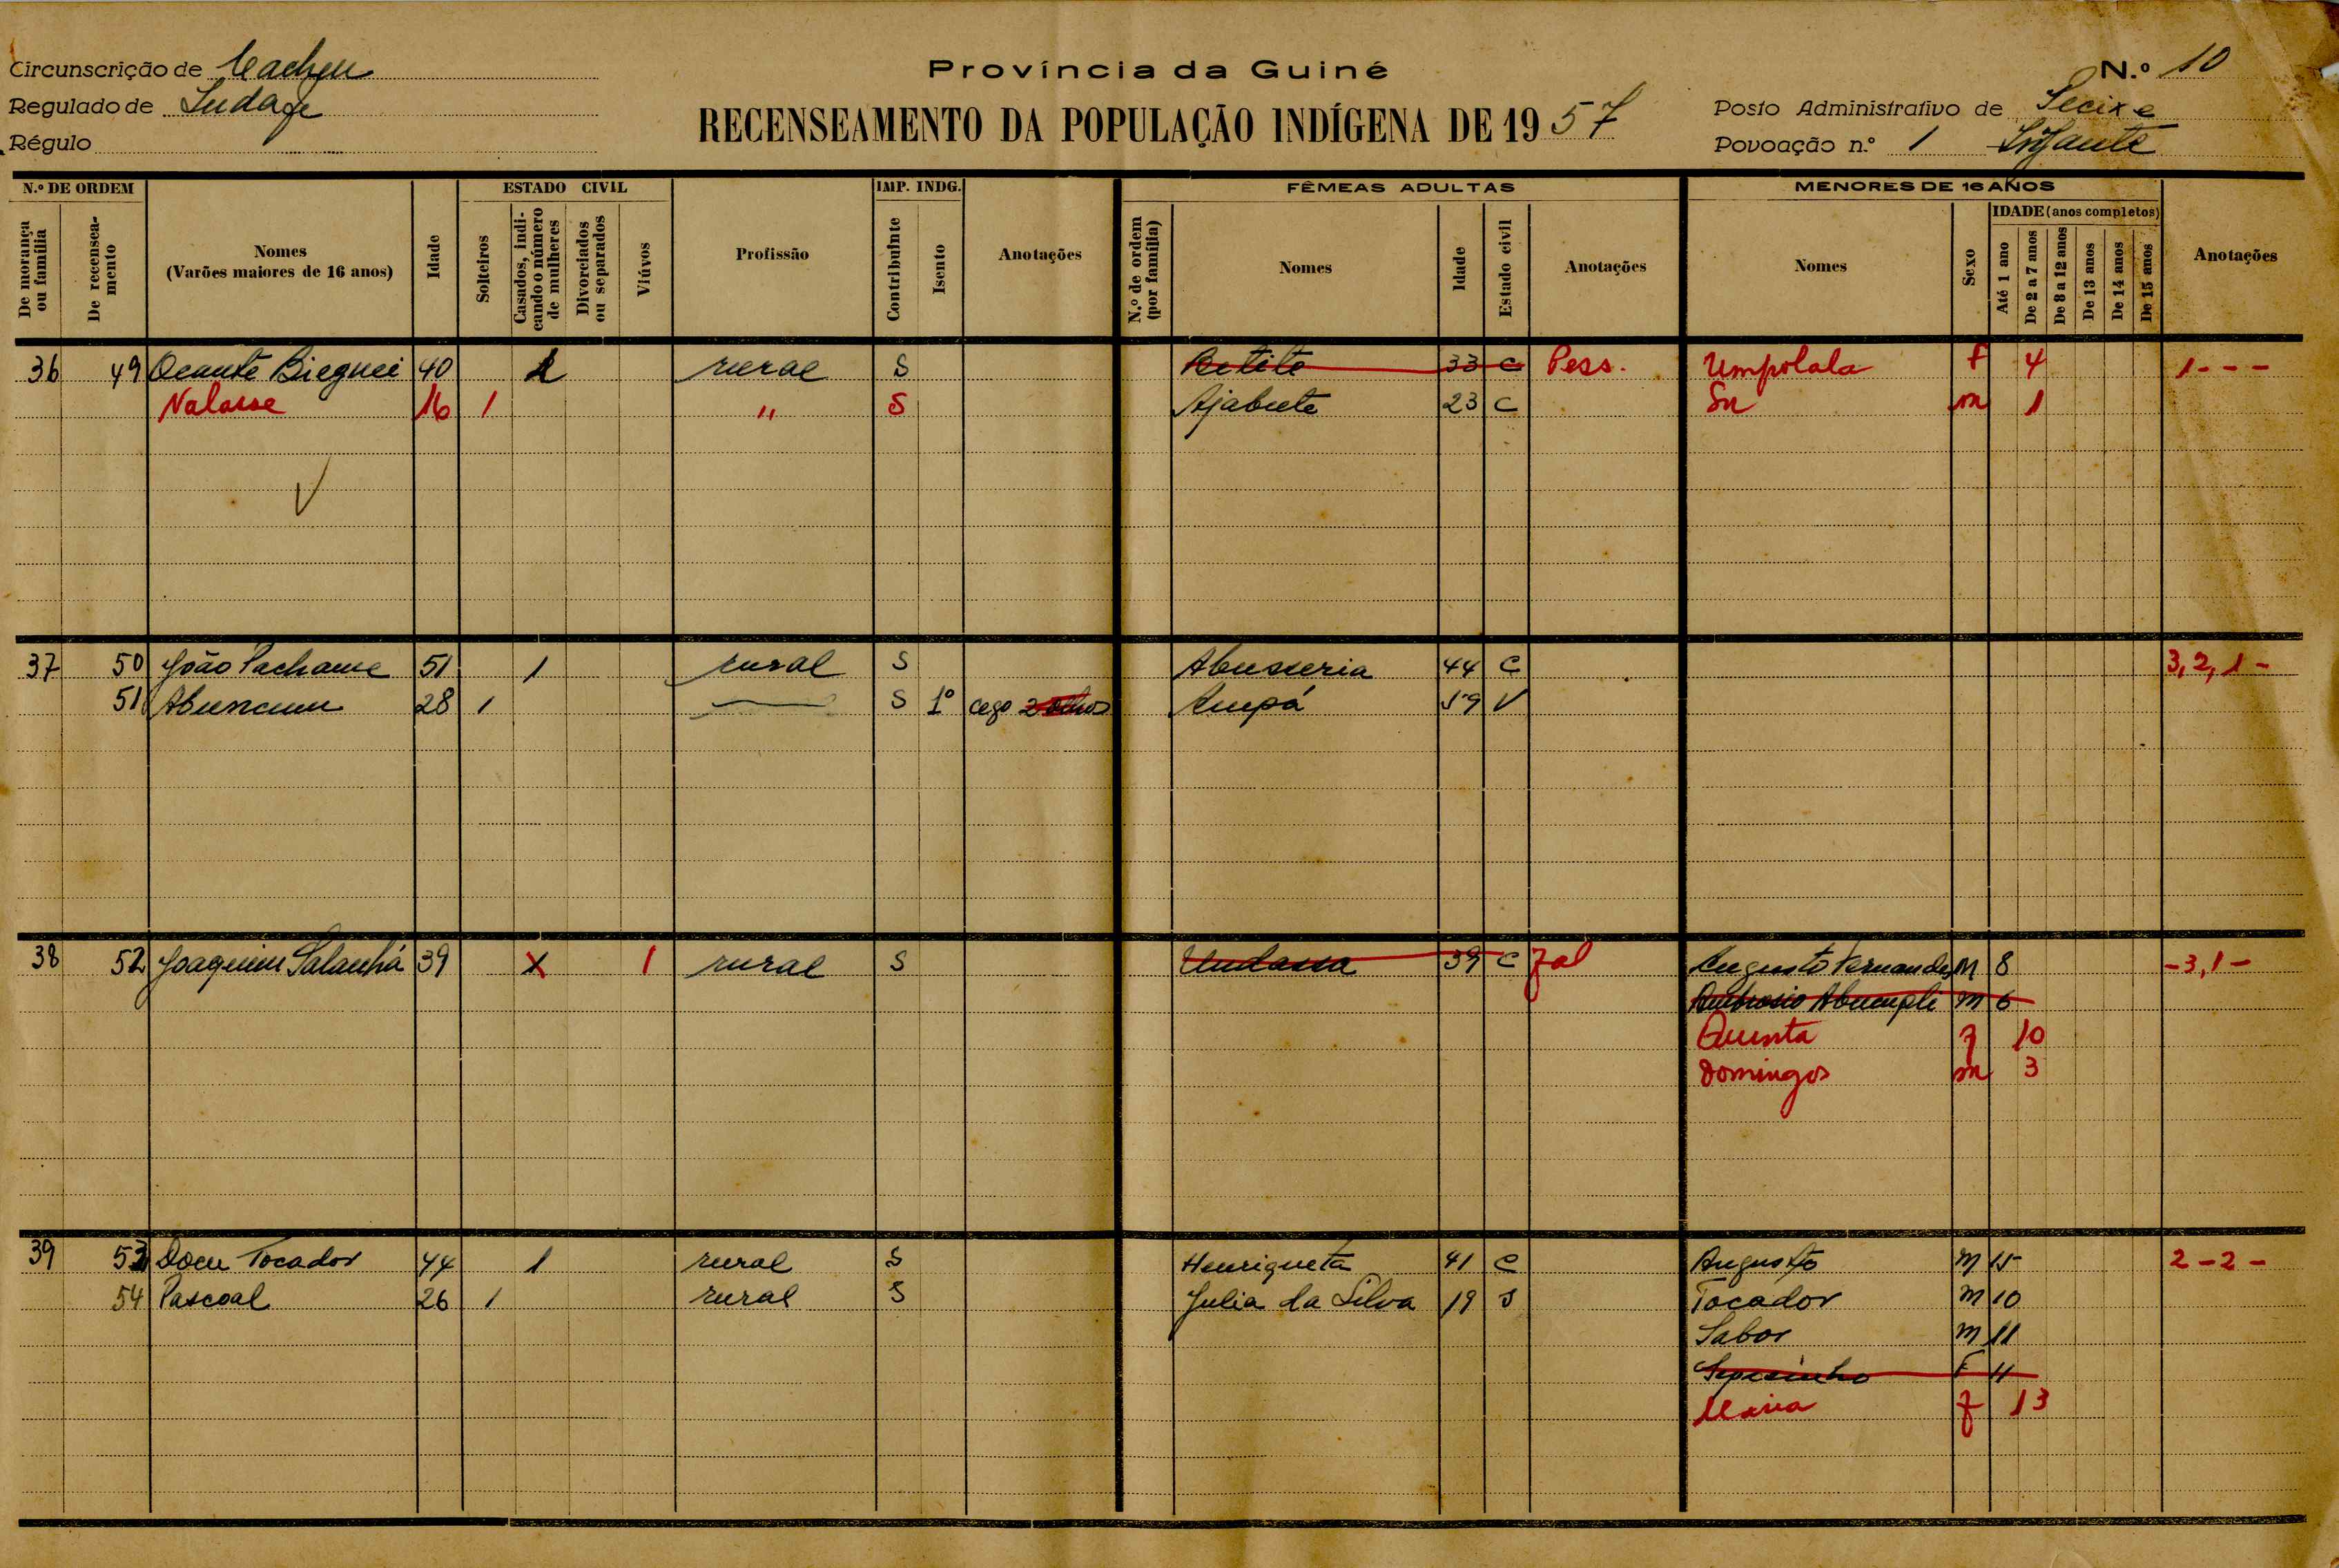 Circunscrição de Cacheu
Regulado de
Régulo
Província da Guiné
RECENSEAMENTO DA POPULAÇÃO INDÍGENA DE 1957
N.º 10
Posto Administrativo de
Povoação n.º 1 Infante
N.º DE ORDEM
De morança ou família
De recenseamento
Nomes
(Varões maiores de 16 anos)
Idade
ESTADO CIVIL
Solteiros
Casados, indicando o número de mulheres
Divorciados ou separados
Viúvos
Profissão
IMP. INDG.
Contribuinte
Isento
Anotações
FÊMEAS ADULTAS
N.º de ordem (por família)
Nomes
Idade
Estado civil
Anotações
MENORES DE 16 ANOS
Nomes
Sexo
IDADE (anos completos)
Até 1 ano
De 2 a 7 anos
De 8 a 12 anos
De 13 anos
De 14 anos
De 15 anos
Anotações
36 49 Ocante 40 rural S 33 C Pess. Umpolala F 4 1 - - -
Nalasse 16 1 " S Ajabute 23 C m 1
37 50 João 51 1 rural S 44 C 3, 2, 1 -
51 28 1 S 1º cego 2 olhos Ampá 59 V
38 52 Joaquim 39 X 1 rural S 39 C fal Augusto Fernandes M 8 - 3, 1 -
Ambrosio m 6
Quinta f 10
Domingos m 3
39 53 Tocador 44 1 rural S Henriqueta 41 C Augusto M 15 2 - 2 -
54 Pascoal 26 1 rural S Julia da Silva 19 S Tocador M 10
Sabor m 11
F 4
Maria f 13